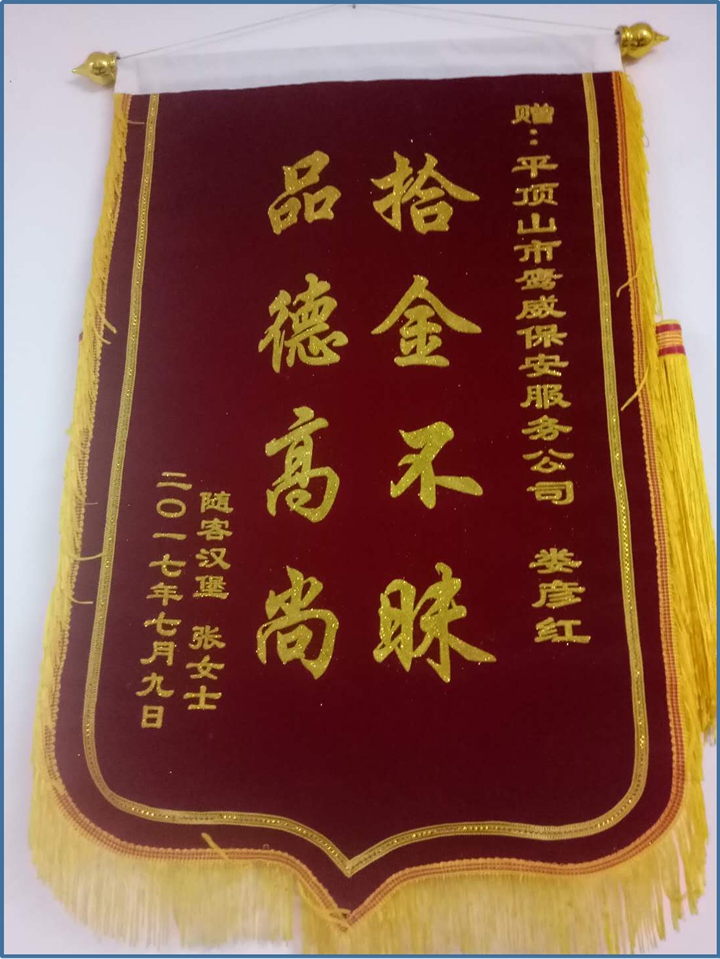 赠：平顶山市鹰威保安服务公司 娄彦红
拾金不昧
品德高尚
随客汉堡 张女士
二〇一七年七月九日